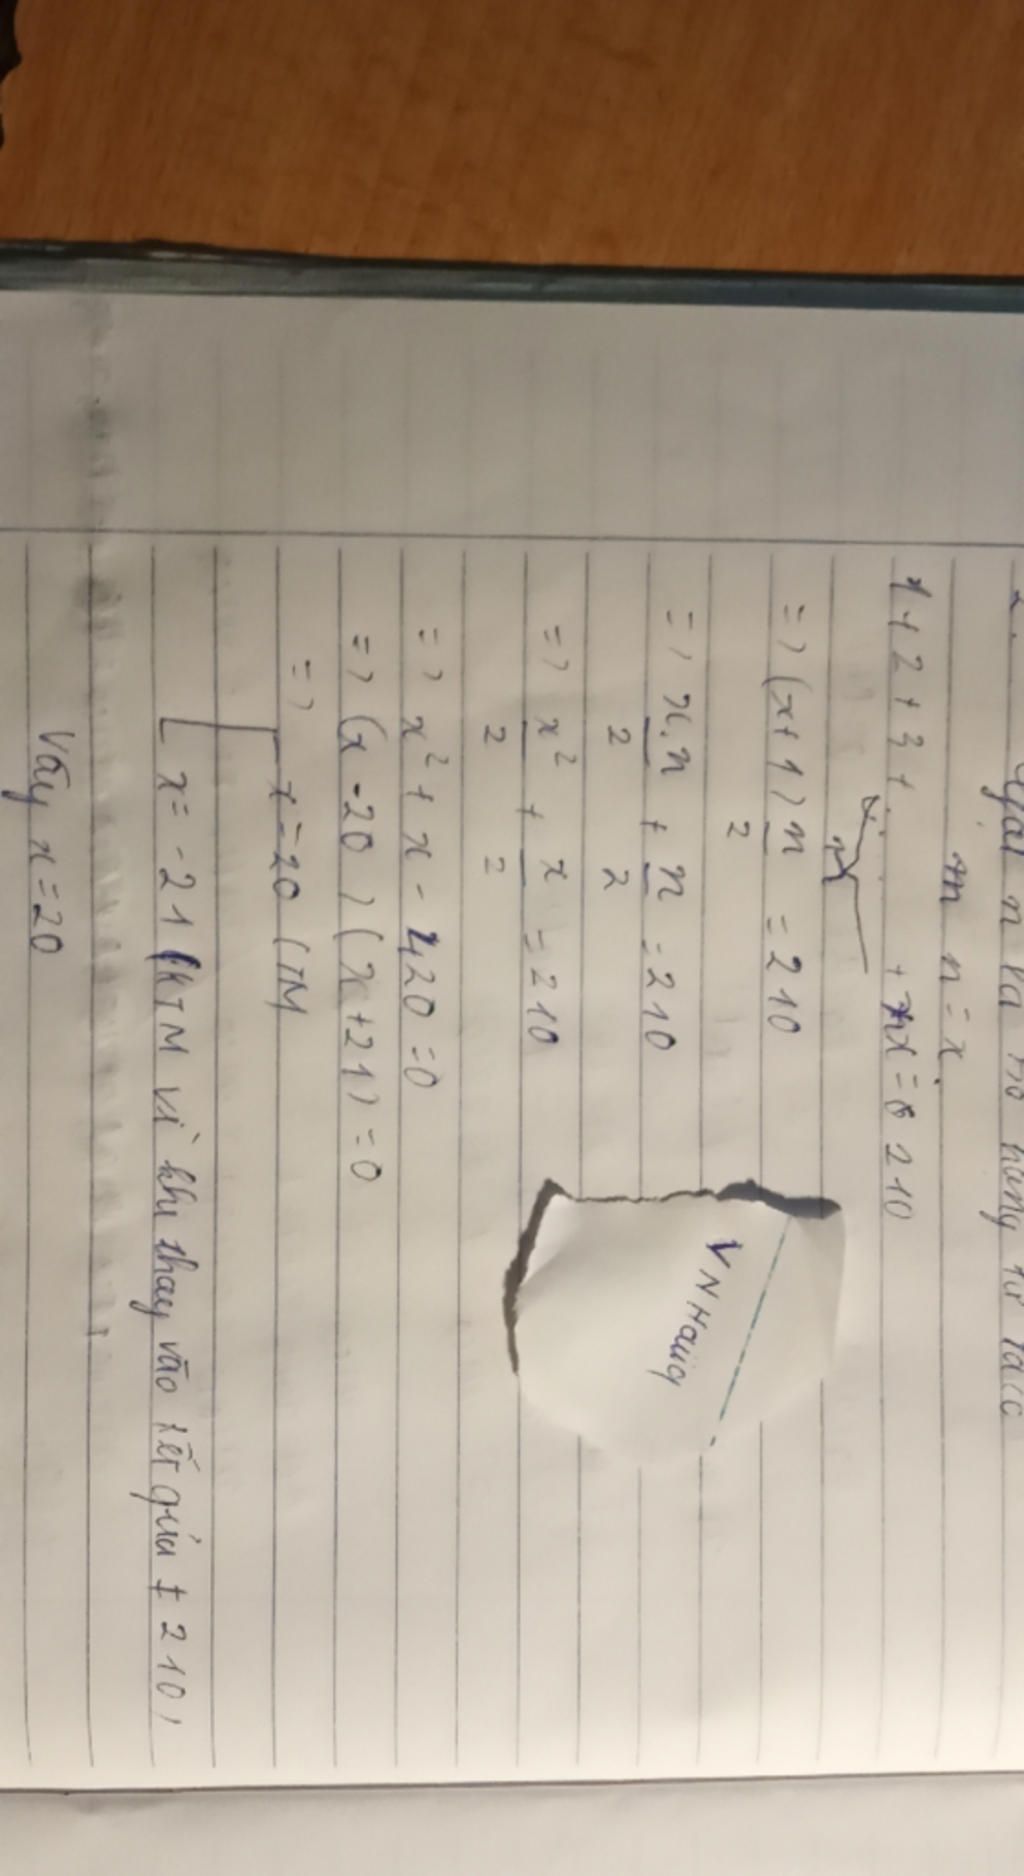 n là số hạng từ
n = x
1 + 2 + 3 + ....... + x = 210
x
=> (x+1) n/2 = 210
=> x.n/2 + n/2 = 210
=> x²/2 + x/2 = 210
=> x² + x - 420 = 0
=> (x - 20) (x + 21) = 0
=> [ x = 20 (TM
x = -21 (KTM vì khi thay vào kết qủa ≠ 210)
Vậy x = 20
VN Hang